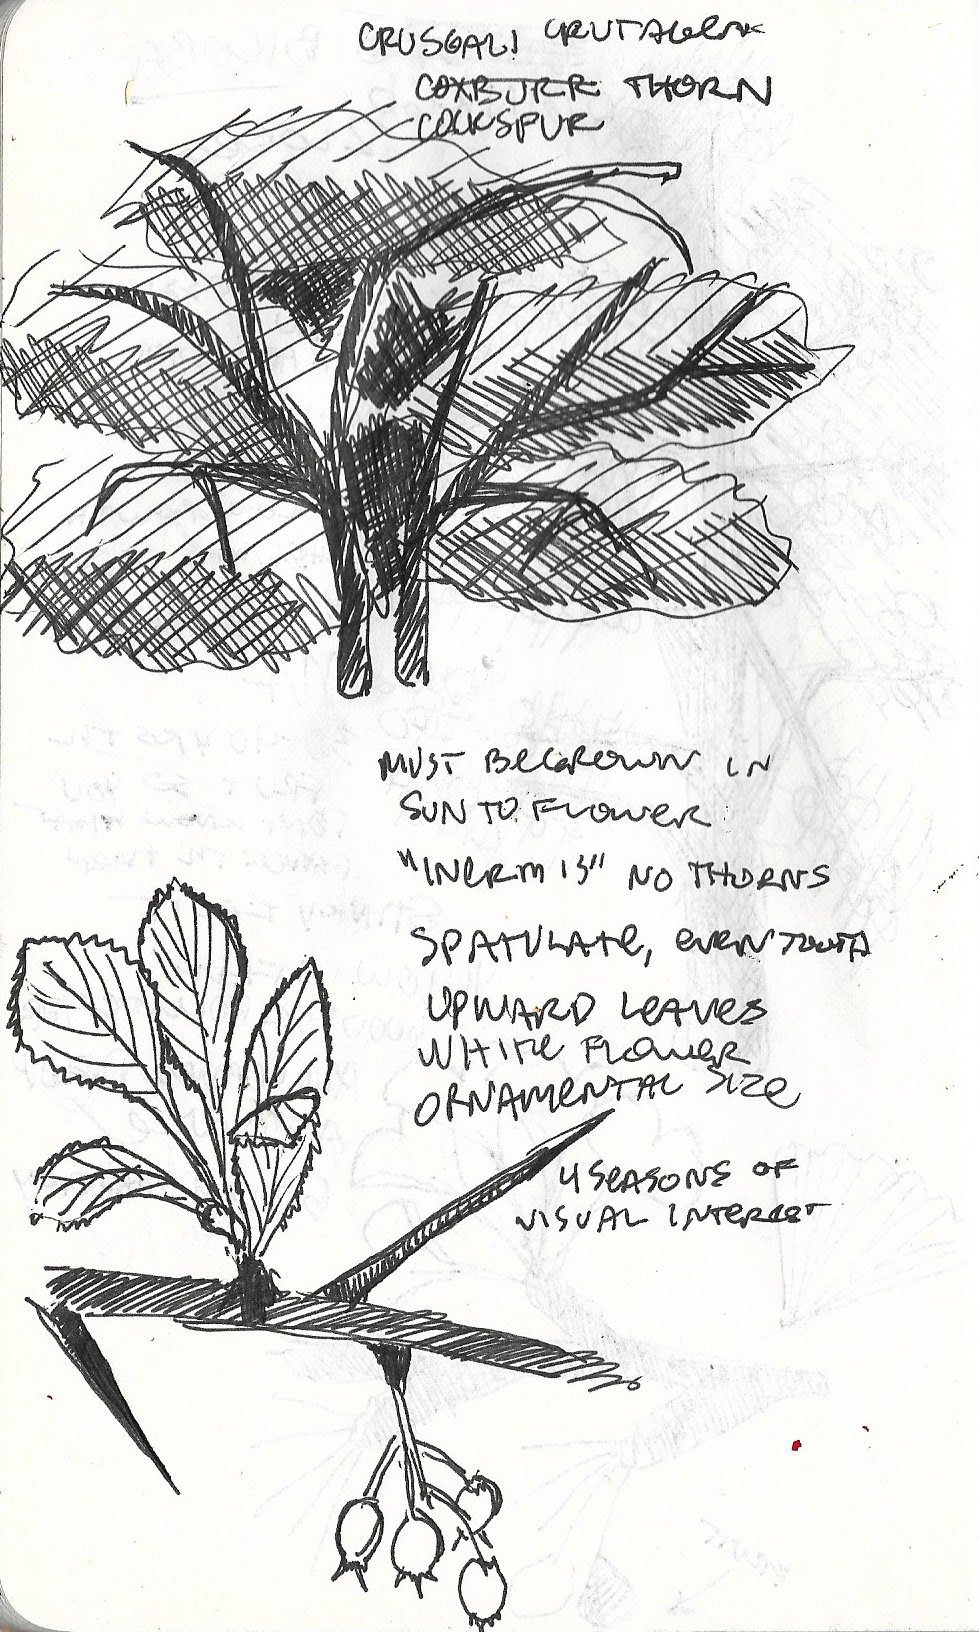 CRUSGALI CRUTAGEAK
COXBURR THORN
COCKSPUR
MUST BE GROWN IN
SUN TO FLOWER
"INERMIS" NO THORNS
SPATULATE, EVEN TOOTH
UPWARD LEAVES
WHITE FLOWER
ORNAMENTAL SIZE
4 SEASONS OF
VISUAL INTEREST